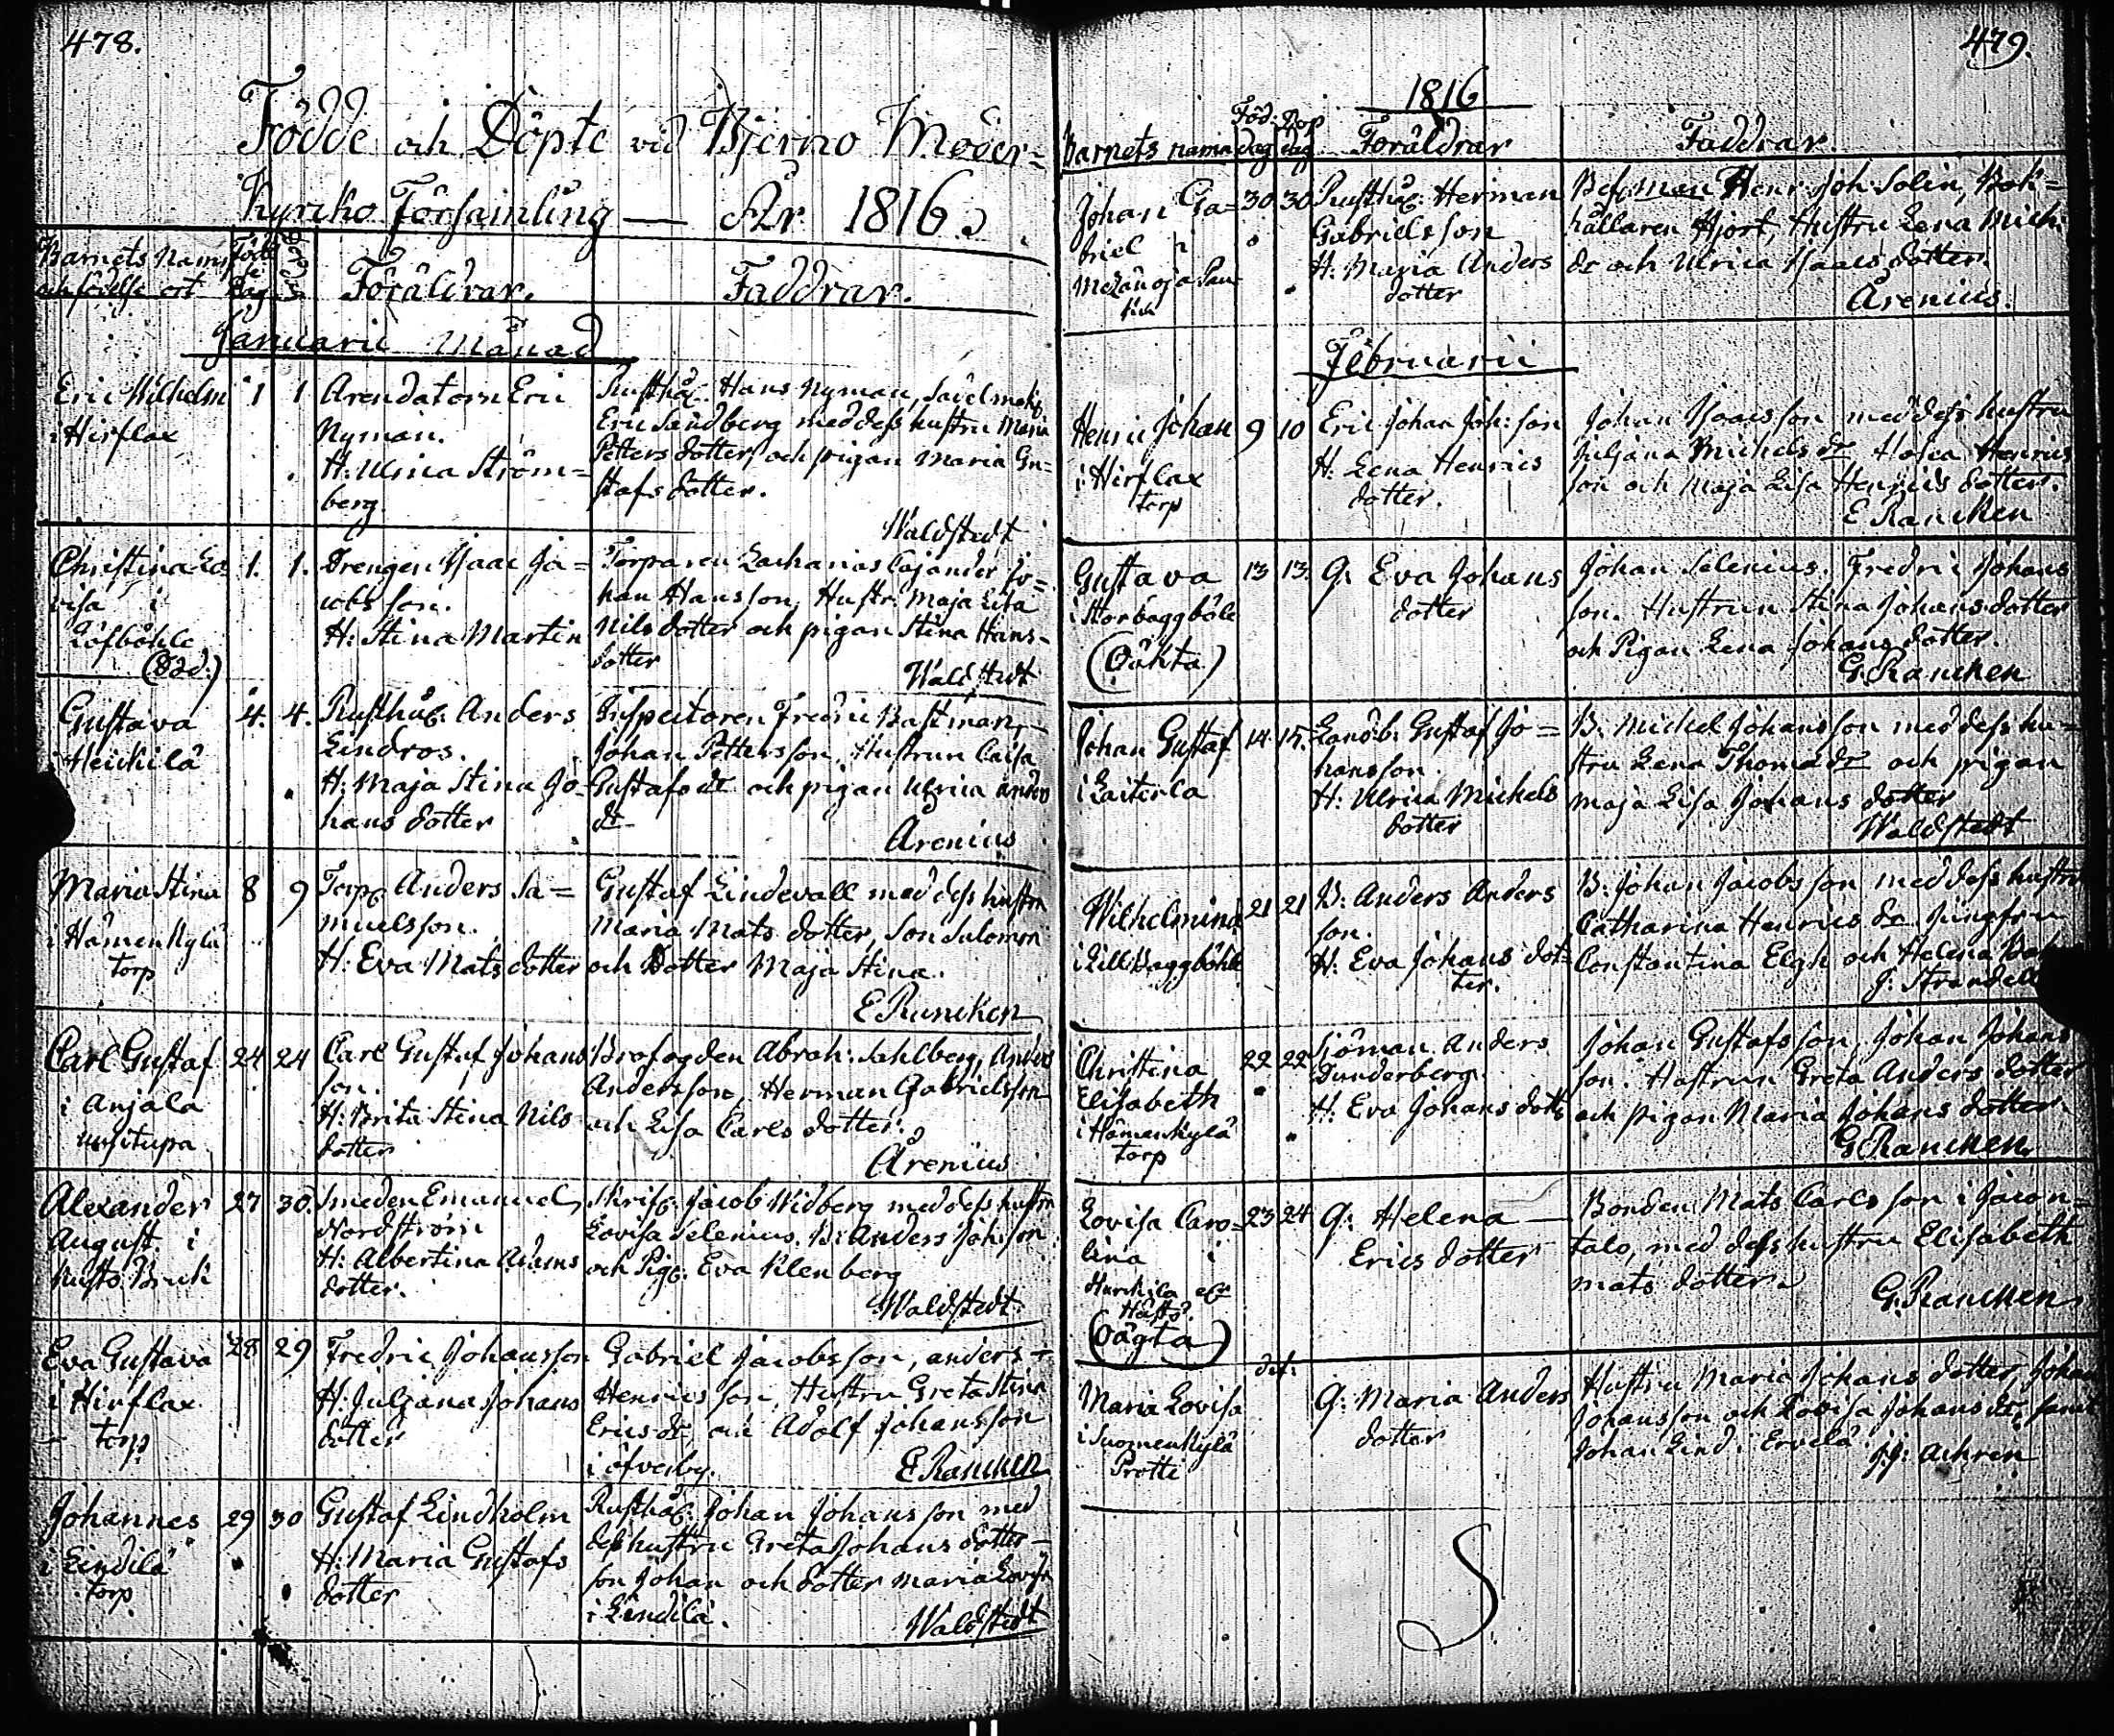 478.
Födde och Döpte vid Bjerno Moder=
Kyrko Församling — År 1816.
Barnets Namn
och födelse ort
Född
dag
Föräldrar.
Faddrar.
Januarii Månad
Eric Wilhelm
i Hirflax
1
1
Arendatorn Eric
Nyman.
H: Ulrica Ström=
berg.
Rusthåll. Hans Nyman,
Eric Sandberg med dess hustru Maria
Petters dotter, och pigan Maria Gu=
stafs dotter.
Waldstedt
Christina Lo
visa i
Löfböhle
1.
1.
Drengen Isaac Ja=
cobs son.
H: Stina Martin
Torparen Zacharias Cajander Jo=
han Hansson, Hustr. Maja Lisa
Nils dotter och pigan Stina Hans-
dotter
Waldstedt
Gustava
i Heickilä
4.
4.
Rusthåll. Anders
Lindros.
H: Maja Stina Jo-
hans dotter
Inspectoren Fredric Bastman,
Johan Pettersson, Hustrun Caisa
Gustafs dr och pigan Ulrica Anders
dr
Arenius
Maria Stina
i Hämenkylä
torp
8
9
Torp. Anders Sa=
muelsson.
H: Eva Mats dotter
Gustaf Lindevall med dess hustru
Maria Mats dotter, Son Salomon
och Dotter Maja Stina.
E Rancken
Carl Gustaf
i Anjala
24
24
Carl Gustaf Johans
son.
H: Brita Stina Nils
dotter
Brofogden Abrah: Sahlberg, Anders
Andersson, Herman Gabrielsson
och Lisa Carls dotter.
Arenius
Alexander
August i
Bruk
27
30.
Smeden Emanuel
Nordström
H: Albertina Adams
dotter.
Jacob Widberg med dess hustru
Lovisa Selenius. B: Anders Joh:son
och Pig: Eva Klenberg
Waldstedt
Eva Gustava
i Hirflax
torp
28
29
Fredric Johansson
H: Juljana Johans
dotter
Gabriel Jacobsson, Anders
Henrics son, Hustru Greta Stina
Erics dr och Adolf Johansson
i Öfverby.
E Rancken
Johannes
i Lindilä
torp
29
30
Gustaf Lindholm
H: Maria Gustafs
dotter
Rusthåll: Johan Johansson med
dess hustru Greta Johans dotter
son Johan och dotter Maria Lovisa
i Lindilä.
Waldstedt
479.
1816
Barnets namn
Föd:
dag
Dop
dag
Föräldrar
Faddrar
Johan Ga=
briel i
30
30
Rusthåll: Herman
Gabrielsson
H: Maria Anders
dotter
Bef.man Henr: Joh: Solin, Bok=
hållaren Hjort, Hustru Lena Mich:
dr och Ulrica Isaacs dotter.
Arenius.
Februarii
Henric Johan
i Hirflax
torp
9
10
Eric Johan Joh: son
H: Lena Henrics
dotter.
Johan Isaacsson med dess hustru
Juljana Michels dr Henrics
son och Maja Lisa Henrics dotter.
E Rancken
Gustava
i Storbaggböle
(Oäkta)
13
13.
Q: Eva Johans
dotter
Johan Selenius. Fredric Johans
son. Hustrun Stina Johans dotter
och Pigan Lena Johans dotter.
G. Rancken
Johan Gustaf
i Laiterla
14
15.
Landb. Gustaf Jo=
hansson.
H: Ulrica Michels
dotter
B. Michel Johansson med dess hu=
stru Lena Thomæ dr och pigan
Maja Lisa Johans dotter
Waldstedt
Wilhelmina
i Lill Baggböhle
21
21
B: Anders Anders
son.
H: Eva Johans dot=
ter.
B: Johan Jacobsson med dess hustru
Catharina Henrics dr Jungfru
Constantina Elgh och Helena
J: Strandell
Christina
Elisabeth
i Hämenkylä
torp
22
22
Sjöman Anders
Dunderberg.
H: Eva Johans dott.
Johan Gustafsson, Johan Johans
son. Hustrun Greta Anders dotter
och pigan Maria Johans dotter.
G. Rancken.
Lovisa Caro=
lina i
(Oägta)
23
24
Q: Helena —
Erics dotter
Bonden Mats Carlsson i Jacon=
talo, med dess hustru Elisabeth
Mats dotter.
G. Rancken
Maria Lovisa
i Suomenkylä
Protti
Q: Maria Anders
dotter
Hustru Maria Johans dotter, Johan
Johansson och Lovisa Johans dr, samt
Johan Lind i Ervelä.
J.J: Achren